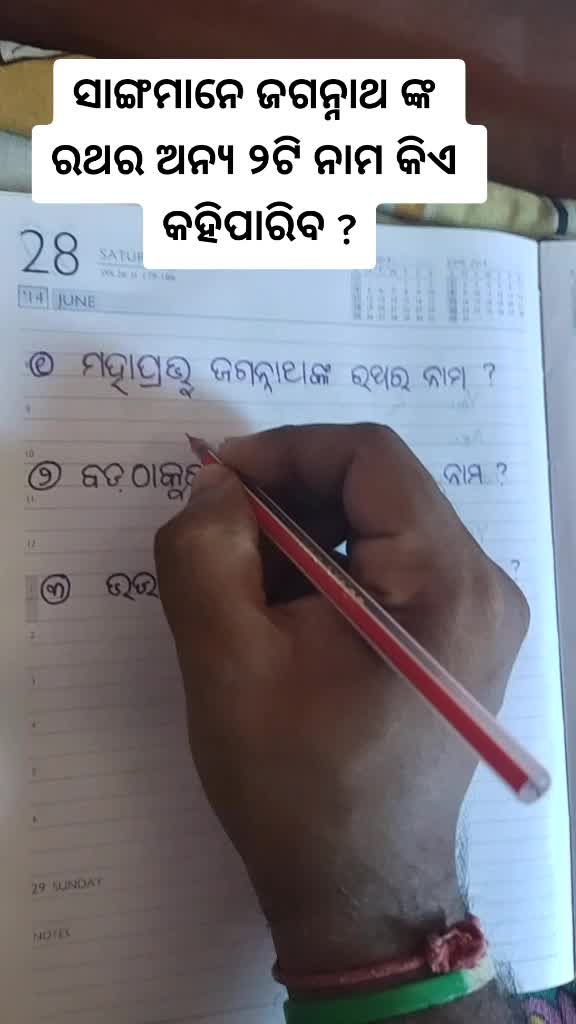 ସାଙ୍ଗମାନେ ଜଗନ୍ନାଥ ଙ୍କ
ରଥର ଅନ୍ୟ ୨ଟି ନାମ କିଏ
କହିପାରିବ ?
28
'14 JUNE
୧ ମହାପ୍ରଭୁ ଜଗନ୍ନାଥଙ୍କ ରଥର ନାମ ?
୨ ବଡ଼ ଠାକୁ ନାମ ?
୩ ?
29 SUNDAY
NOTES